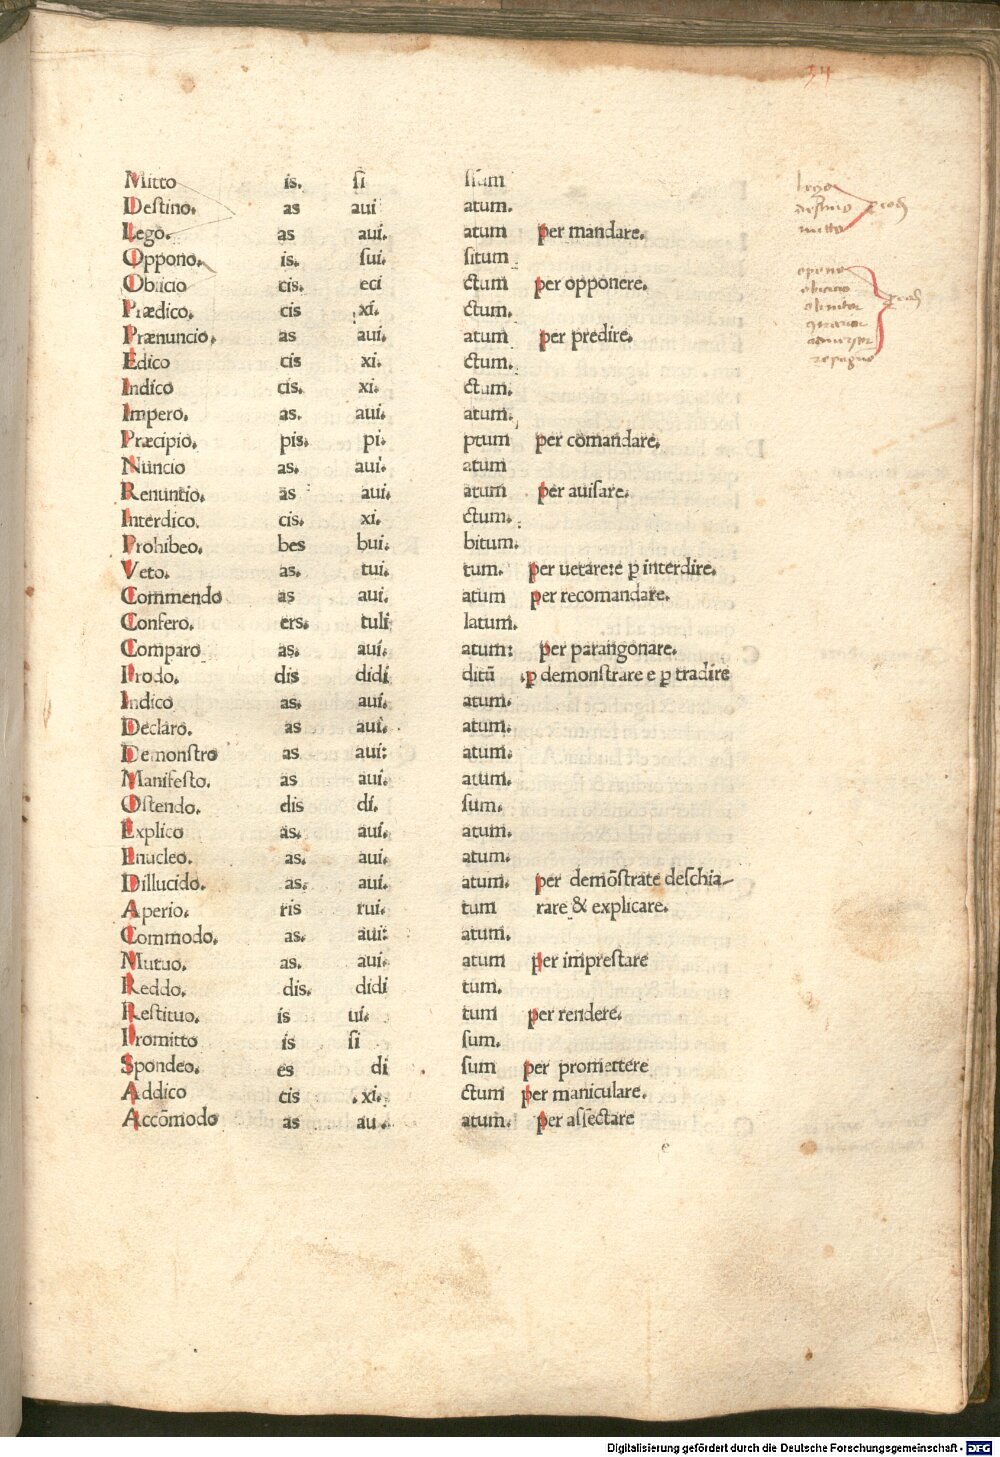 34
Mitto is. ſi ſſum
Deſtino. as aui atum.
Lego. as aui. atum per mandare.
Oppono. is. ſui. ſitum
Obiicio cis. eci ctum per opponere.
Prædico. cis xi. ctum.
Prænuncio. as aui. atum per predire.
Edico cis xi. ctum.
Indico cis. xi. ctum.
Impero. as. aui. atum.
Præcipio. pis. pi. ptum per comandare.
Nuncio as. aui. atum
Renuntio. as aui. atum per auiſare.
Interdico. cis. xi. ctum.
Prohibeo. bes bui. bitum.
Veto. as. tui. tum. per uetare:e ꝑ interdire.
Commendo as aui. atum per recomandare.
Confero. ers. tuli latum.
Comparo as. aui. atum: per parangonare.
Prodo. dis didi ditū .ꝑ demonſtrare e ꝑ tradire
Indico as. aui. atum.
Declaro. as aui. atum.
Demonſtro as aui: atum.
Manifeſto. as aui. atum.
Oſtendo. dis di. ſum.
Explico as. aui. atum.
Enucleo. as. aui. atum.
Dillucido. as. aui. atum. per demōſtrate deſchia-
Aperio. ris rui. tum rare & explicare.
Commodo. as. aui: atum.
Mutuo. as. aui. atum per impreſtare
Reddo. dis. didi tum.
Reſtituo. is ui. tum per rendere.
Promitto is ſi ſum.
Spondeo. es di ſum per promettere
Addico cis .xi. ctum per maniculare.
Accōmodo as au. atum. per aſſectare
lego
deſtino
mitto
opono
obicio
repugno
Digitalisierung gefördert durch die Deutsche Forschungsgemeinschaft - DFG